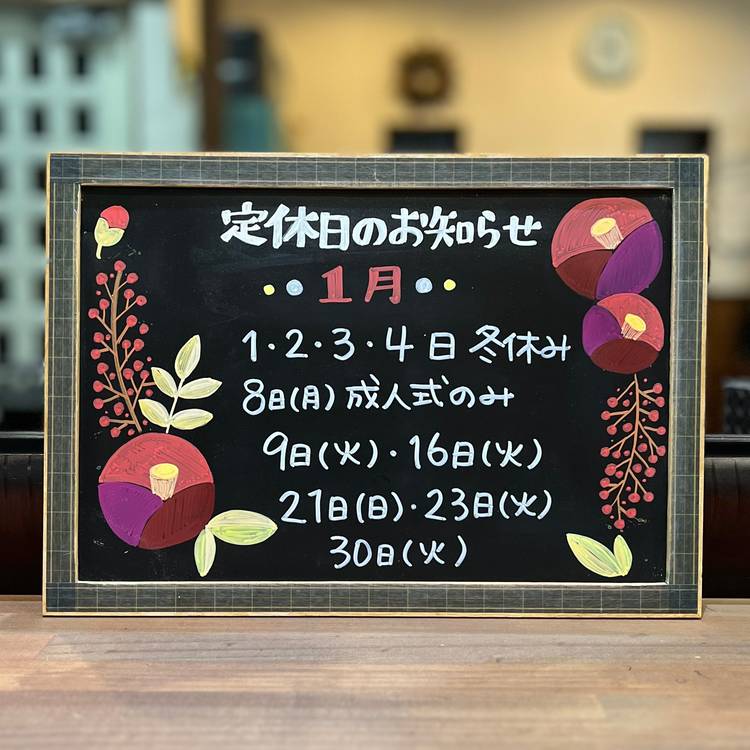 定休日のお知らせ
1月
1・2・3・4日 冬休み
8日(月)成人式のみ
9日(火)・16日(火)
21日(日)・23日(火)
30日(火)